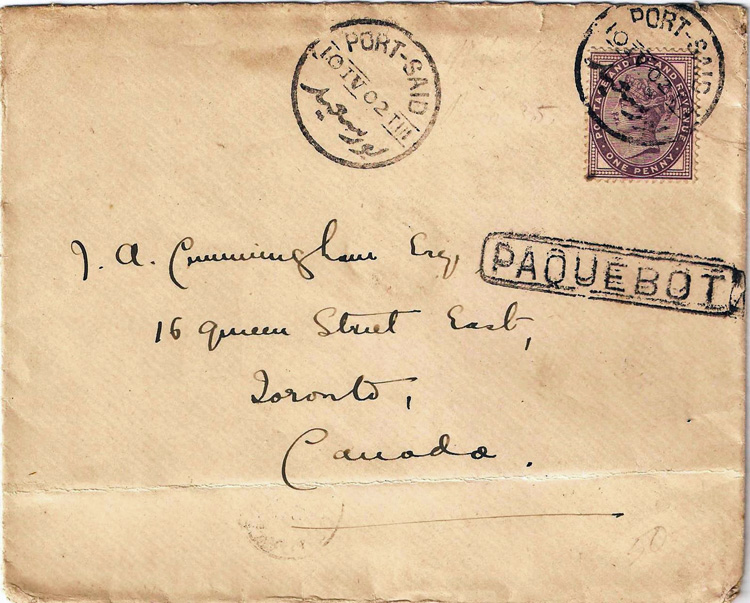 PORT-SAID
10 IV 02 T III
بورسعيد
PORT-SAID
POSTAGE AND INLAND REVENUE
ONE PENNY
PAQUEBOT
J. A. Cunningham Esq,
16 Queen Street East,
Toronto,
Canada.